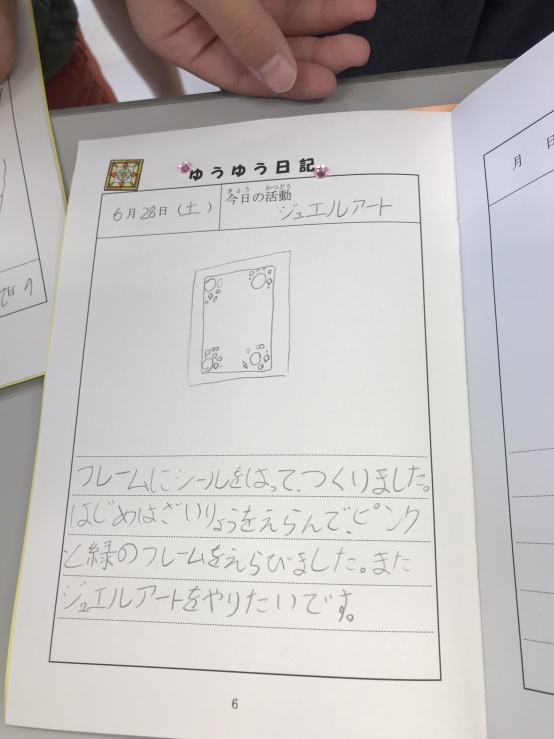 ゆうゆう日記
6月28日(土)
きょう かつどう
今日の活動
ジュエルアート
フレームにシールをはって、つくりました。
はじめはざいりょうをえらんで、ピンク
と緑のフレームをえらびました。また
ジュエルアートをやりたいです。
6
月 日